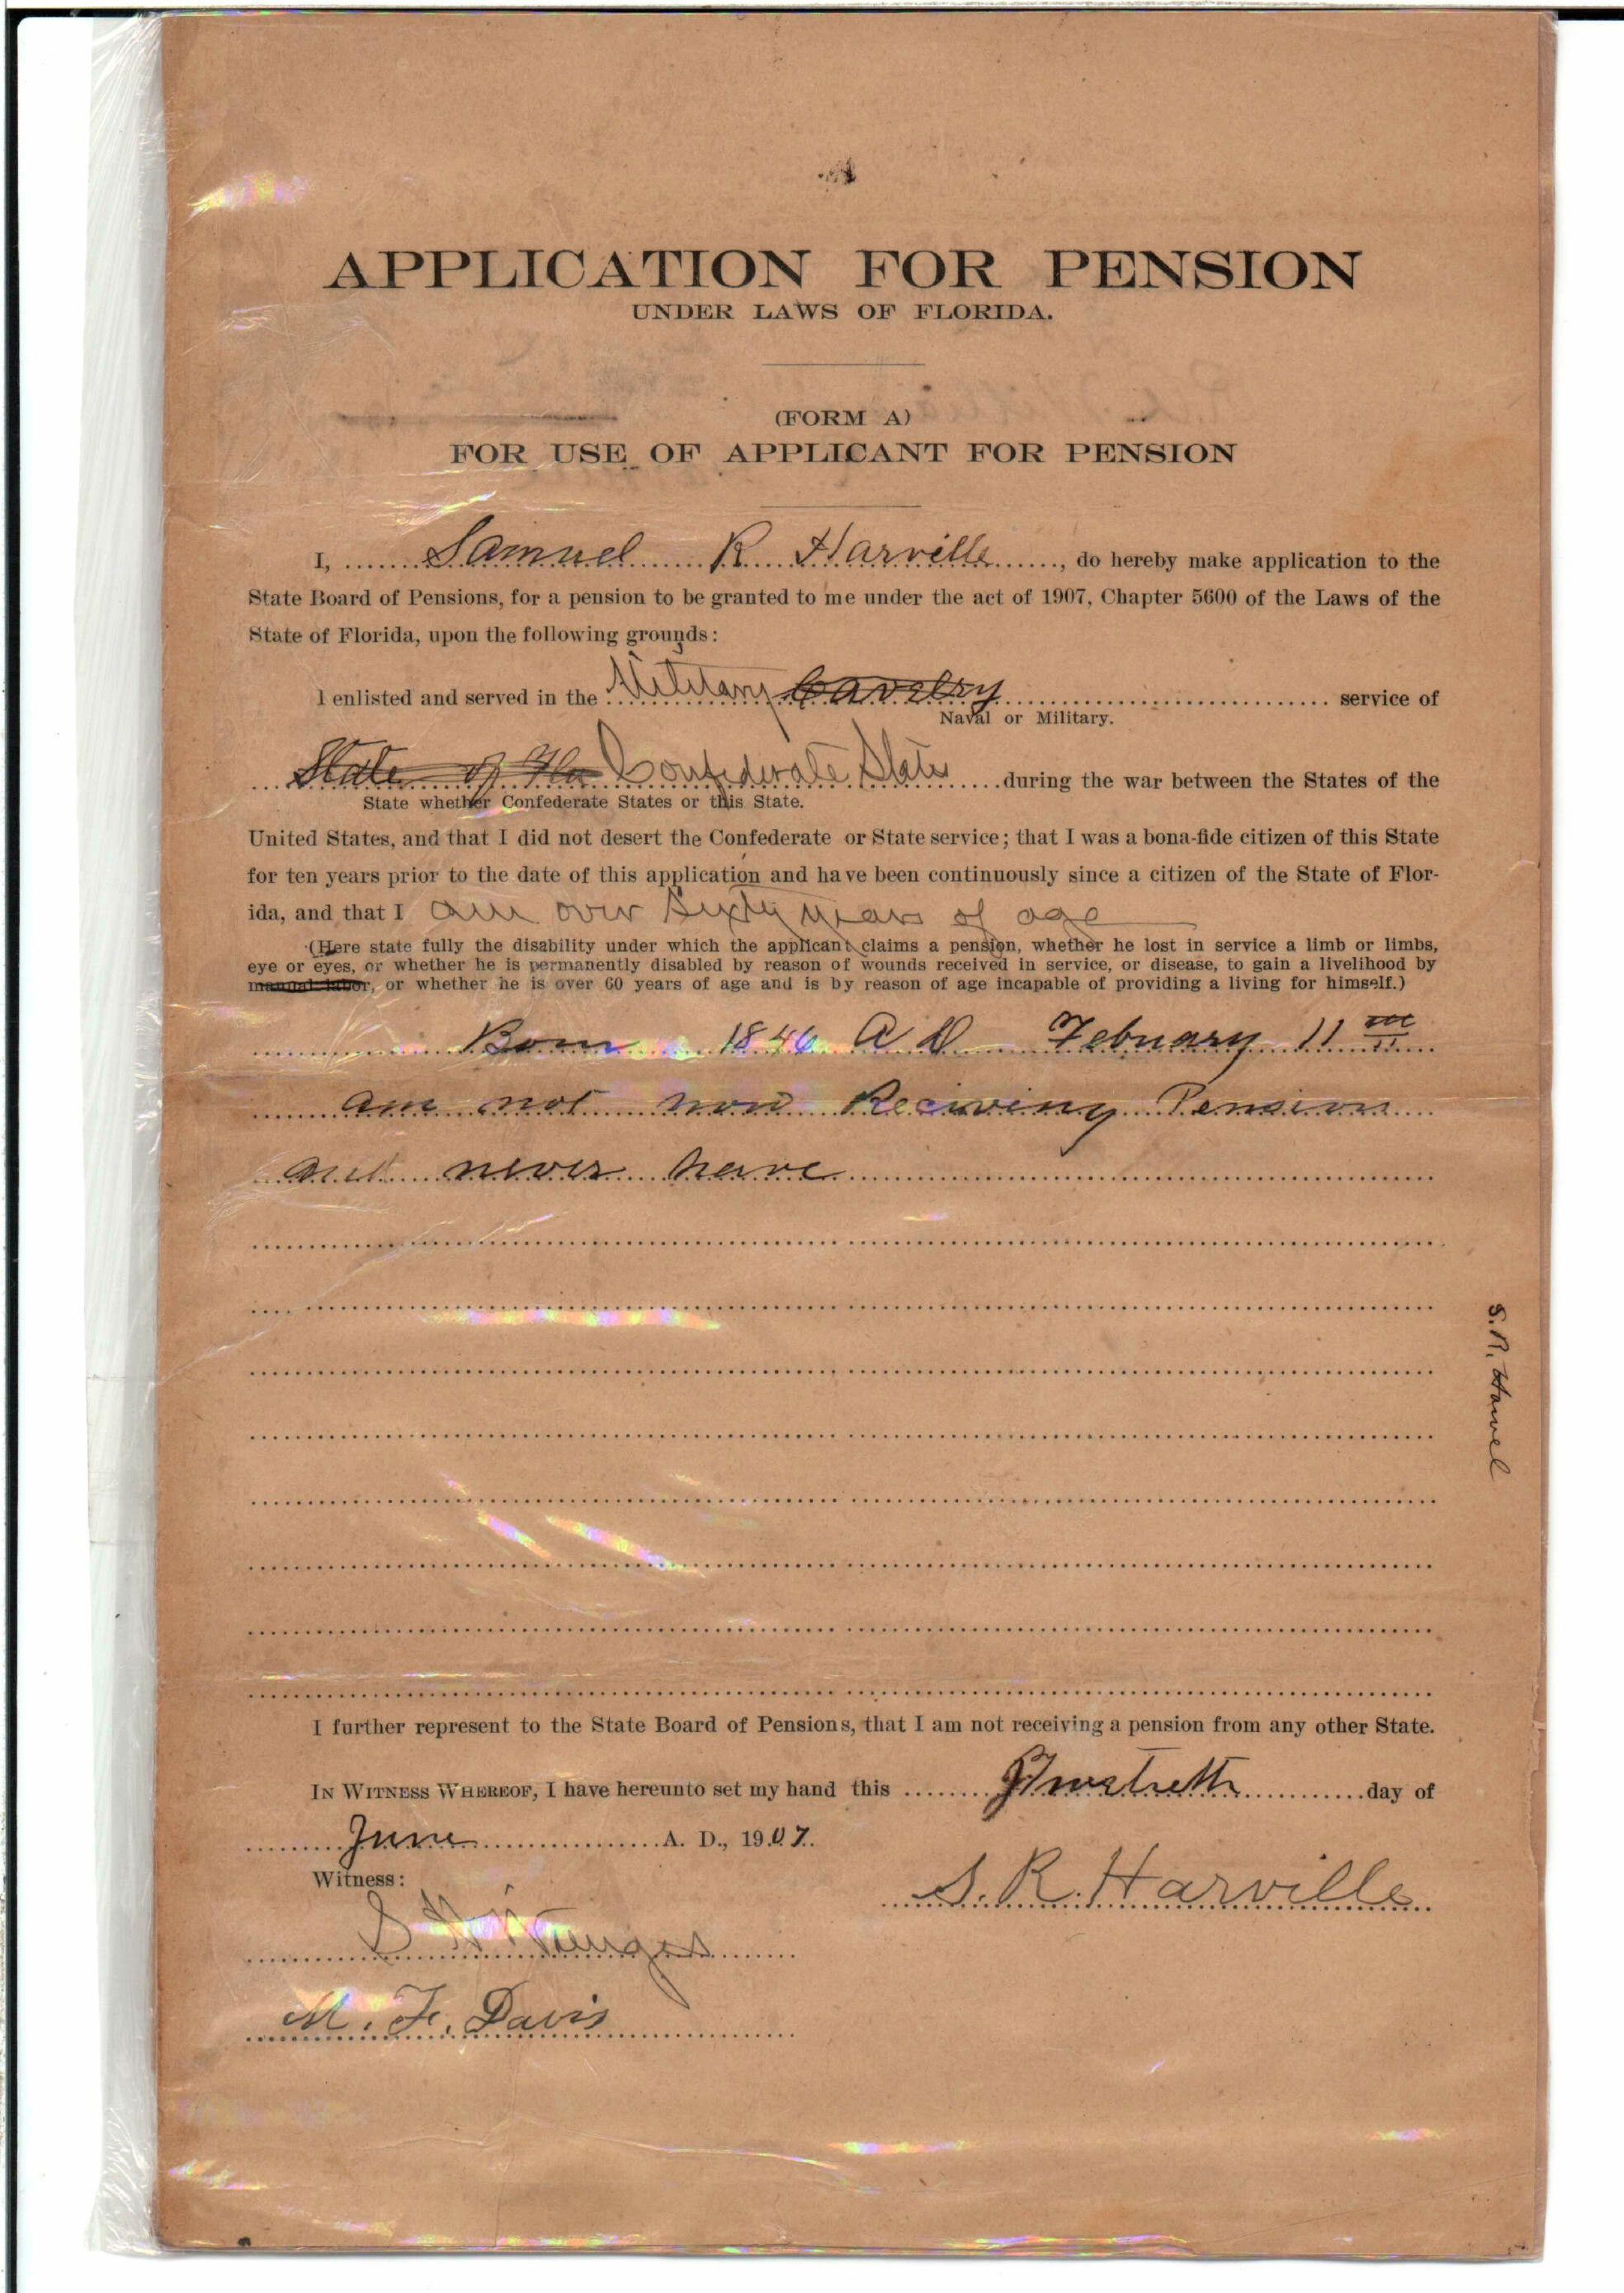 APPLICATION FOR PENSION
UNDER LAWS OF FLORIDA.
(FORM A)
FOR USE OF APPLICANT FOR PENSION
I, Samuel R Harville, do hereby make application to the
State Board of Pensions, for a pension to be granted to me under the act of 1907, Chapter 5600 of the Laws of the
State of Florida, upon the following grounds:
I enlisted and served in the Military Cavalry service of
Naval or Military.
State of Fla Confederate States during the war between the States of the
State whether Confederate States or this State.
United States, and that I did not desert the Confederate or State service; that I was a bona-fide citizen of this State
for ten years prior to the date of this application and have been continuously since a citizen of the State of Flor-
ida, and that I am over sixty years of age
(Here state fully the disability under which the applicant claims a pension, whether he lost in service a limb or limbs,
eye or eyes, or whether he is permanently disabled by reason of wounds received in service, or disease, to gain a livelihood by
manual labor, or whether he is over 60 years of age and is by reason of age incapable of providing a living for himself.)
Born 1846 A D February 11
am not now Reciving Pension
and never have
I further represent to the State Board of Pensions, that I am not receiving a pension from any other State.
IN WITNESS WHEREOF, I have hereunto set my hand this day of
June A. D., 1907.
Witness:
S. R. Harville
M. F. Davis
S. R. Harvel